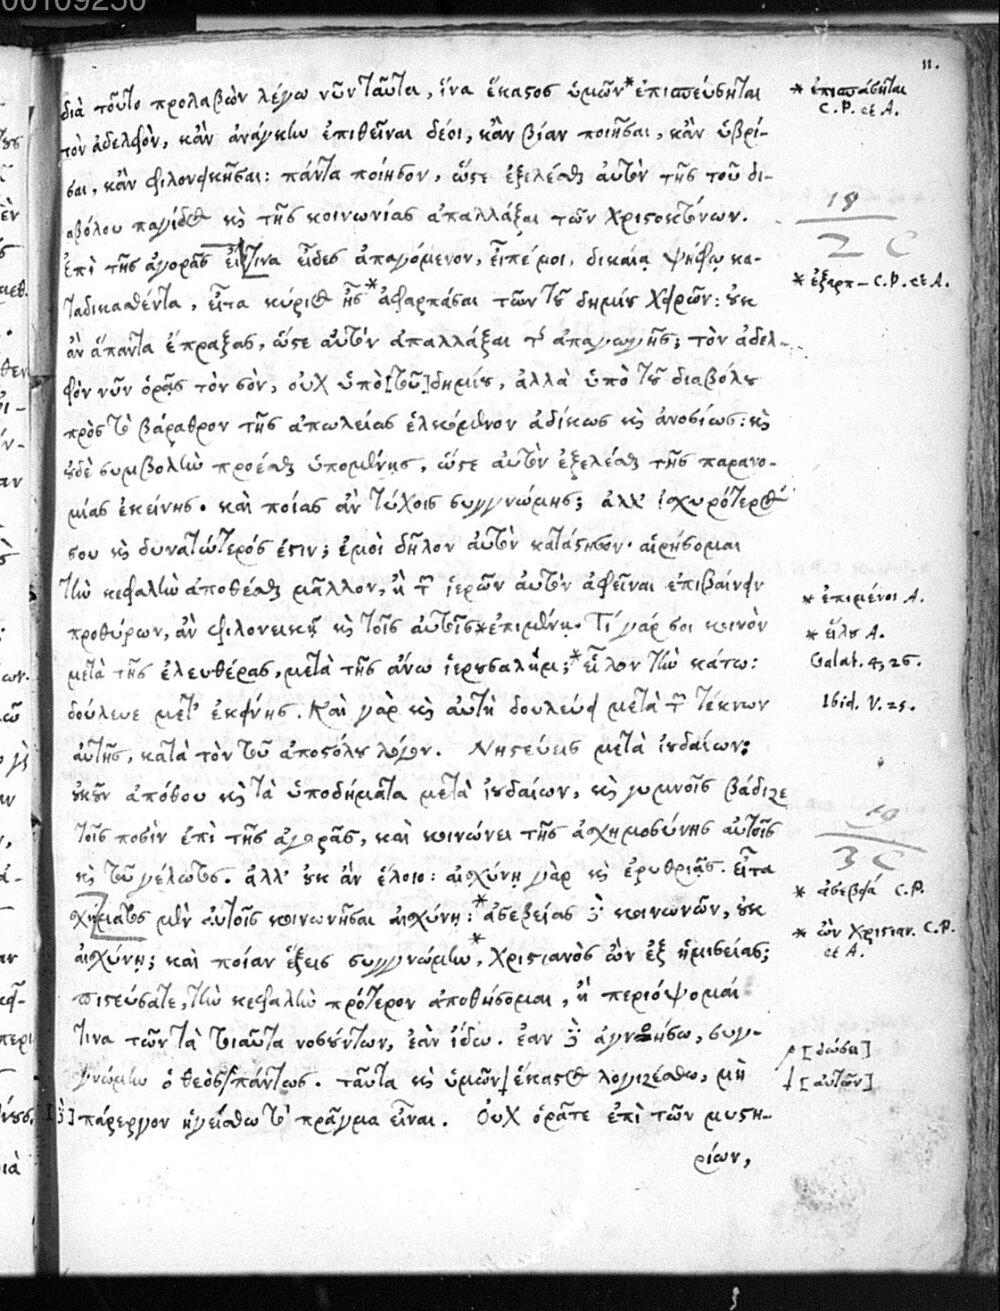 00109250
11.
διὰ τοῦτο προλαβὼν λέγω νῦν ταῦτα, ἵνα ἕκαστος ὑμῶν * ἐπισπεύσηται
τὸν ἀδελφὸν, κἂν ἀνάγκην ἐπιθεῖναι δέοι, κἂν βίαν ποιῆσαι, κἂν ὑβρί-
σαι, κἂν φιλονεικῆσαι: πάντα ποίησον, ὥστε ἐξελέσθαι αὐτὸν τῆς τοῦ δι-
αβόλου παγίδος καὶ τῆς κοινωνίας ἀπαλλάξαι τῶν Χριστοκτόνων.
Ἐπὶ τῆς ἀγορᾶς εἴ τινα εἶδες ἀπαγόμενον, εἰπέ μοι, δικαίᾳ ψήφῳ κα-
ταδικασθέντα, εἶτα κύριος ἦς * ἀφαρπάσαι τῶν τοῦ δημίου χειρῶν: οὐκ
ἂν ἅπαντα ἔπραξας, ὥστε αὐτὸν ἀπαλλάξαι τῆς ἀπαγωγῆς; τὸν ἀδελ-
φὸν νῦν ὁρᾷς τὸν σὸν, οὐχ ὑπὸ [τοῦ] δημίου, ἀλλὰ ὑπὸ τοῦ διαβόλου
πρὸς τὸ βάραθρον τῆς ἀπωλείας ἑλκόμενον ἀδίκως καὶ ἀνοσίως: καὶ
οὐδὲ συμβολὴν προέσθαι ὑπομένεις, ὥστε αὐτὸν ἐξελέσθαι τῆς παρανο-
μίας ἐκείνης. καὶ ποίας ἂν τύχοις συγγνώμης; ἀλλ' ἰσχυρότερός
σου καὶ δυνατώτερός ἐστιν; ἐμοὶ δῆλον αὐτὸν κατάστησον. αἱρήσομαι
τὴν κεφαλὴν ἀποθέσθαι μᾶλλον, ἢ τῶν ἱερῶν αὐτὸν ἀφεῖναι ἐπιβαίνειν
προθύρων, ἂν φιλονεικῇ καὶ τοῖς αὐτοῖς * ἐπιμένῃ. Τί γάρ σοι κοινὸν
μετὰ τῆς ἐλευθέρας, μετὰ τῆς ἄνω ἱερουσαλήμ; * εἷλον τὴν κάτω:
δούλευε μετ' ἐκείνης. Καὶ γὰρ καὶ αὐτὴ δουλεύει μετὰ τῶν τέκνων
αὐτῆς, κατὰ τὸν τοῦ ἀποστόλου λόγον. Νηστεύεις μετὰ ἰουδαίων;
οὐκοῦν ἀπόδου καὶ τὰ ὑποδήματα μετὰ ἰουδαίων, καὶ γυμνοῖς βάδιζε
τοῖς ποσὶν ἐπὶ τῆς ἀγορᾶς, καὶ κοινώνει τῆς ἀσχημοσύνης αὐτοῖς
καὶ τοῦ γέλωτος. ἀλλ' οὐκ ἂν ἕλοιο: αἰσχύνῃ γὰρ καὶ ἐρυθριᾷς. εἶτα
σχήματος μὲν αὐτοῖς κοινωνῆσαι αἰσχύνῃ: * ἀσεβείας δὲ κοινωνῶν, οὐκ
αἰσχύνῃ; καὶ ποίαν ἕξεις συγγνώμην, * Χριστιανὸς ὢν ἐξ ἡμισείας;
πιστεύσατε, τὴν κεφαλὴν πρότερον ἀποθήσομαι, ἢ περιόψομαί
τινα τῶν τὰ τοιαῦτα νοσούντων, ἐὰν ἴδω. ἐὰν δὲ ἀγνοήσω, συγ-
γνώμην ὁ θεὸς πάντως. ταῦτα καὶ ὑμῶν ἕκαστος λογιζέσθω, μὴ
[δὲ] πάρεργον ἡγείσθω τὸ πρᾶγμα εἶναι. Οὐχ ὁρᾶτε ἐπὶ τῶν μυστη-
ρίων,
* ἐπισπάσηται
C.P. et A.
18
2 C
* ἐξαρπ– C.P. et A.
* ἐπιμένοι A.
* εἵλου A.
Galat. 4, 26.
Ibid. V. 25.
3 C
* ἀσεβείᾳ C.P.
* ὢν Χριστιαν. C.P.
et A.
[δώσει]
[αὐτῶν]